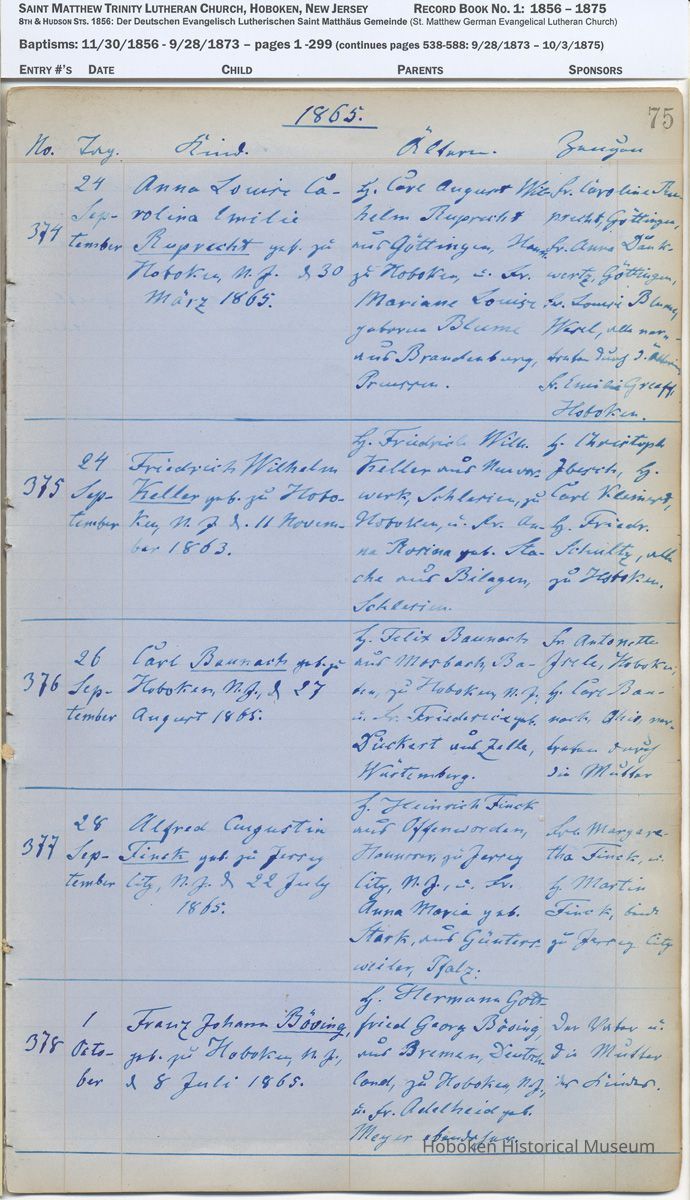 SAINT MATTHEW TRINITY LUTHERAN CHURCH, HOBOKEN, NEW JERSEY RECORD BOOK NO. 1: 1856 – 1875
8TH & HUDSON STS. 1856: Der Deutschen Evangelisch Lutherischen Saint Matthäus Gemeinde (St. Matthew German Evangelical Lutheran Church)
Baptisms: 11/30/1856 - 9/28/1873 – pages 1 -299 (continues pages 538-588: 9/28/1873 – 10/3/1875)
ENTRY #'S DATE CHILD PARENTS SPONSORS
1865. 75
No. Tag. Kind. Ältern. Zeugen
374
24
Sep-
tember
Anna Louise Ca-
rolina Emilie
Ruprecht geb. zu
Hoboken, N. J. d 30
März 1865.
H. Carl August Wil-
helm Ruprecht
aus Göttingen, Hann.
zu Hoboken, u. Fr.
Mariane Louise
geborne Blume
aus Brandenburg,
Preussen.
Fr. Caroline Ru-
precht, Göttingen,
Fr. Anna Dank-
wertz, Göttingen,
Fr. Louise Blume,
Wesel, alle ver-
treten durch d. Ältern,
Fr. Emilie
Hoboken.
375
24
Sep-
tember
Friedrich Wilhelm
Keller geb. zu Hobo-
ken, N. J. d. 11 Novem-
ber 1863.
H. Friedrich Wilh.
Keller aus
werk, Schlesien, zu
Hoboken, u. Fr. An-
na Rosina geb. Sta-
che aus Bilagen,
Schlesien.
H. Christoph
H.
Carl
H. Friedr.
Schultz, alle
zu Hoboken.
376
26
Sep-
tember
Carl Baunach geb. zu
Hoboken, N. J., d 27
August 1865.
H. Felix Baunach
aus Mosbach, Ba-
den, zu Hoboken, N. J.,
u. Fr. Friedericke geb.
Dückert aus Zelle,
Würtemberg.
Fr. Antonette
Hoboken,
H. Carl Bau-
nach, Ohio, ver-
treten durch
die Mutter
377
28
Sep-
tember
Alfred Augustin
Finck geb. zu Jersey
City, N. J. d 22 July
1865.
H. Heinrich Finck
aus Offenworden,
Hannover, zu Jersey
City, N. J., u. Fr.
Anna Maria geb.
Stark, aus Günters-
weiler, Pfalz.
Margare-
tha Finck, u.
H. Martin
Finck, beide
zu Jersey City
378
1
Octo-
ber
Franz Johann Böving,
geb. zu Hoboken, N. J.,
d 8 Juli 1865.
H. Hermann Gott-
fried Georg Böving
aus Bremen, Deutsch-
land, zu Hoboken, N. J.,
u. Fr. Adelheid geb.
Meyer ebendaher.
Der Vater u.
die Mutter
des Kindes.
Hoboken Historical Museum